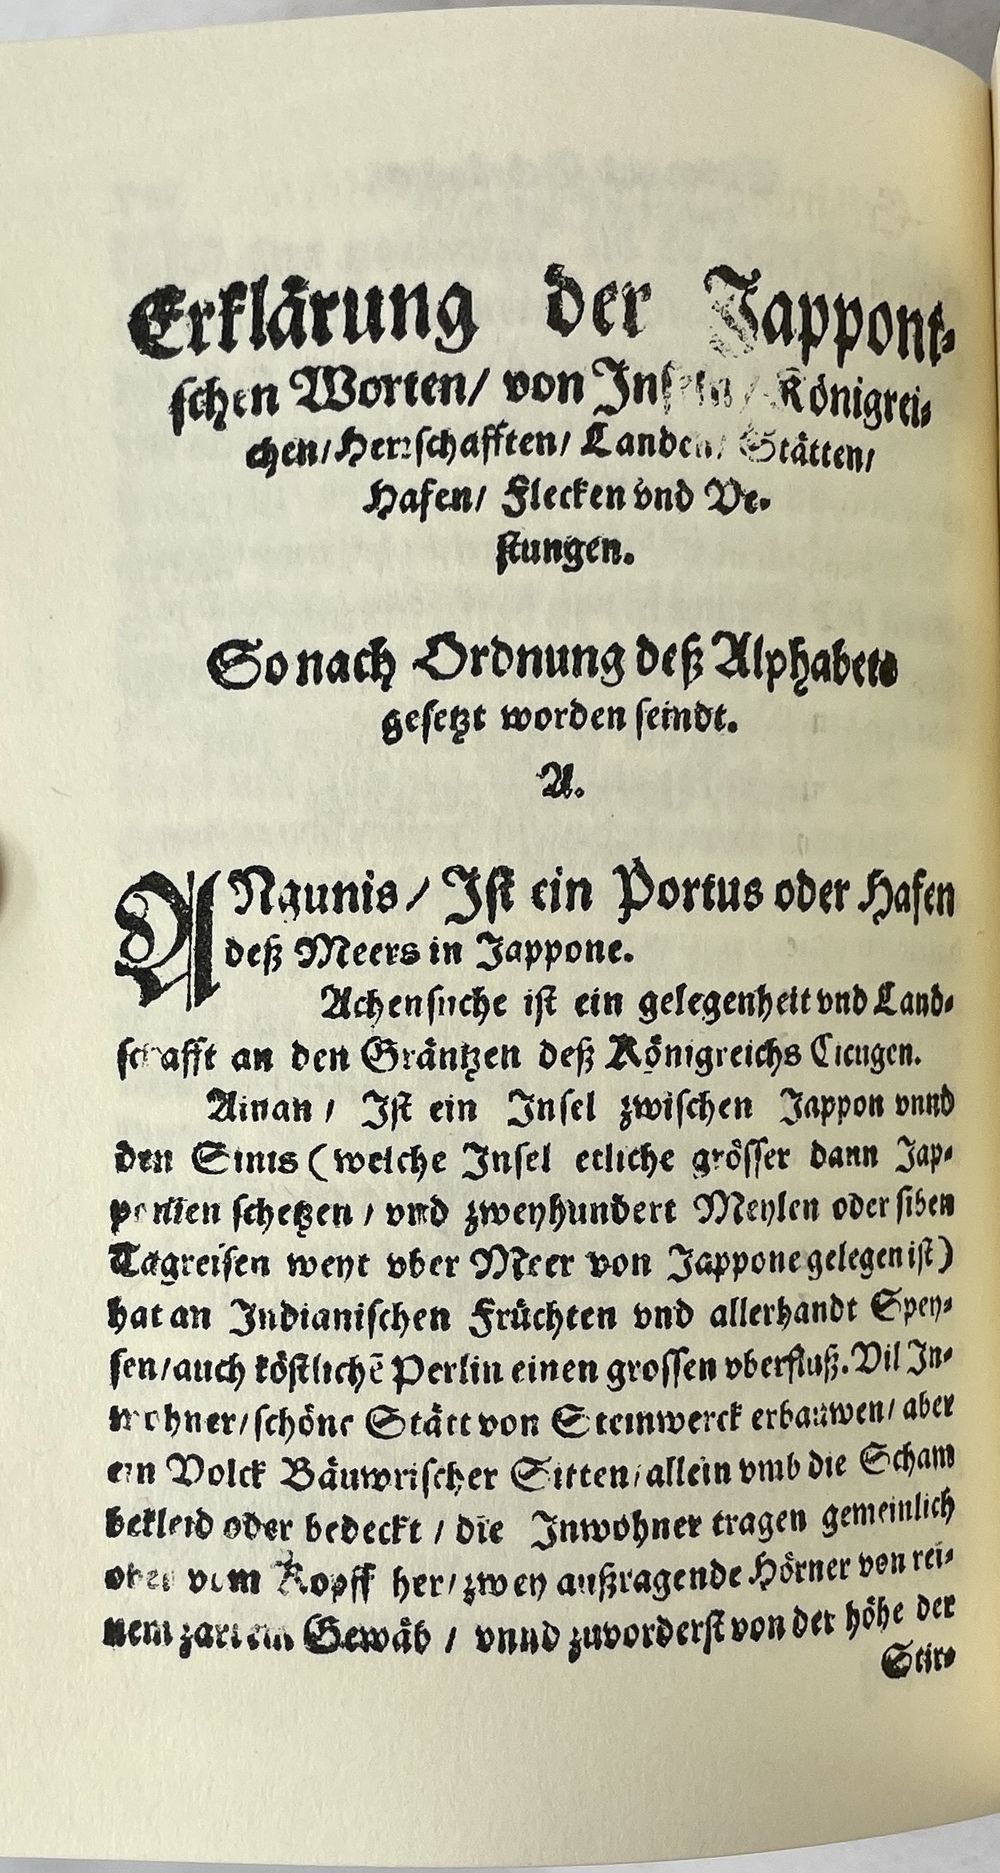 Erklärung der Japponi-
schen Worten/ von Inseln/ Königrei-
chen/ Herrschafften/ Landen/ Stätten/
Hafen/ Flecken vnd Ve-
stungen.
So nach Ordnung deß Alphabets
gesetzt worden seindt.
A.
ANgunis/ Ist ein Portus oder Hafen
deß Meers in Jappone.
Achensuche ist ein gelegenheit vnd Land-
schafft an den Gräntzen deß Königreichs Cicugen.
Ainan/ Ist ein Insel zwischen Jappon vnnd
den Sinis (welche Insel etliche grösser dann Jap-
ponien schetzen/ vnd zweyhundert Meylen oder siben
Tagreisen weyt vber Meer von Jappone gelegen ist)
hat an Indianischen Früchten vnd allerhandt Spey-
sen/ auch köstlichē Perlin einen grossen vberfluß. Vil In-
wohner/ schöne Stätt von Steinwerck erbauwen/ aber
ein Volck Bäuwrischer Sitten/ allein vmb die Scham
bekleid oder bedeckt/ die Inwohner tragen gemeinlich
oben vom Kopff her/ zwey außragende Hörner von rei-
nem zartem Gewäb/ vnnd zuvorderst von der höhe der
Stir-